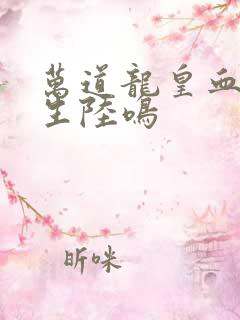 萬道龍皇血
生陸鳴
昕咪